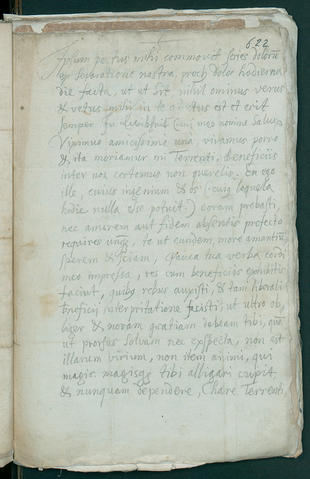 622
Ipsum pectus mihi commovit series dolorū
ex separatione nostra, proch dolor hodierna
die facta, ut ut sit, nihil ominus verus
& vetus mihi in te est et erit
semper (cui meo nomine Salutem
Viximus amicissimè una, vivamus porro
& ita moriamur mi Terrenti, Beneficiis
inter nos certemus non querelis. En ego
ille, cuius ingenium & os (cuius loquela
hodie nulla esse potuit) coram probasti,
nec amorem aut fidem absentis profecto
requires unqᷓ, te ut eundem, more amantiū
sperem & sciam, Pauca tua verba cordi
meo impressa, res cum beneficiis coniunctas
faciunt, quibꝫ rebus auxisti, & tam liberali
beneficii interpretatione fecisti, ut ultro ob,
liger & novam gratiam debeam tibi, quā
ut prorsus solvam nec exspecta, non est
illarum virium, non item animi, qui
magis magisqꝫ tibi alligari cupit
& nunquam dependere, Chare Terrenti,